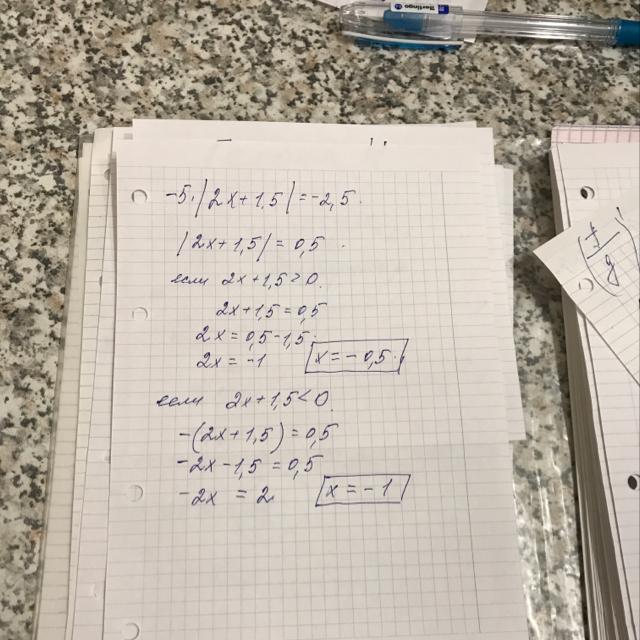 Berlingo
-5·|2x+1,5|=-2,5.
|2x+1,5|=0,5.
если 2x+1,5>0.
2x+1,5=0,5
2x=0,5-1,5.
2x=-1 x=-0,5.
если 2x+1,5<0.
-(2x+1,5)=0,5
-2x-1,5=0,5
-2x=2 x=-1